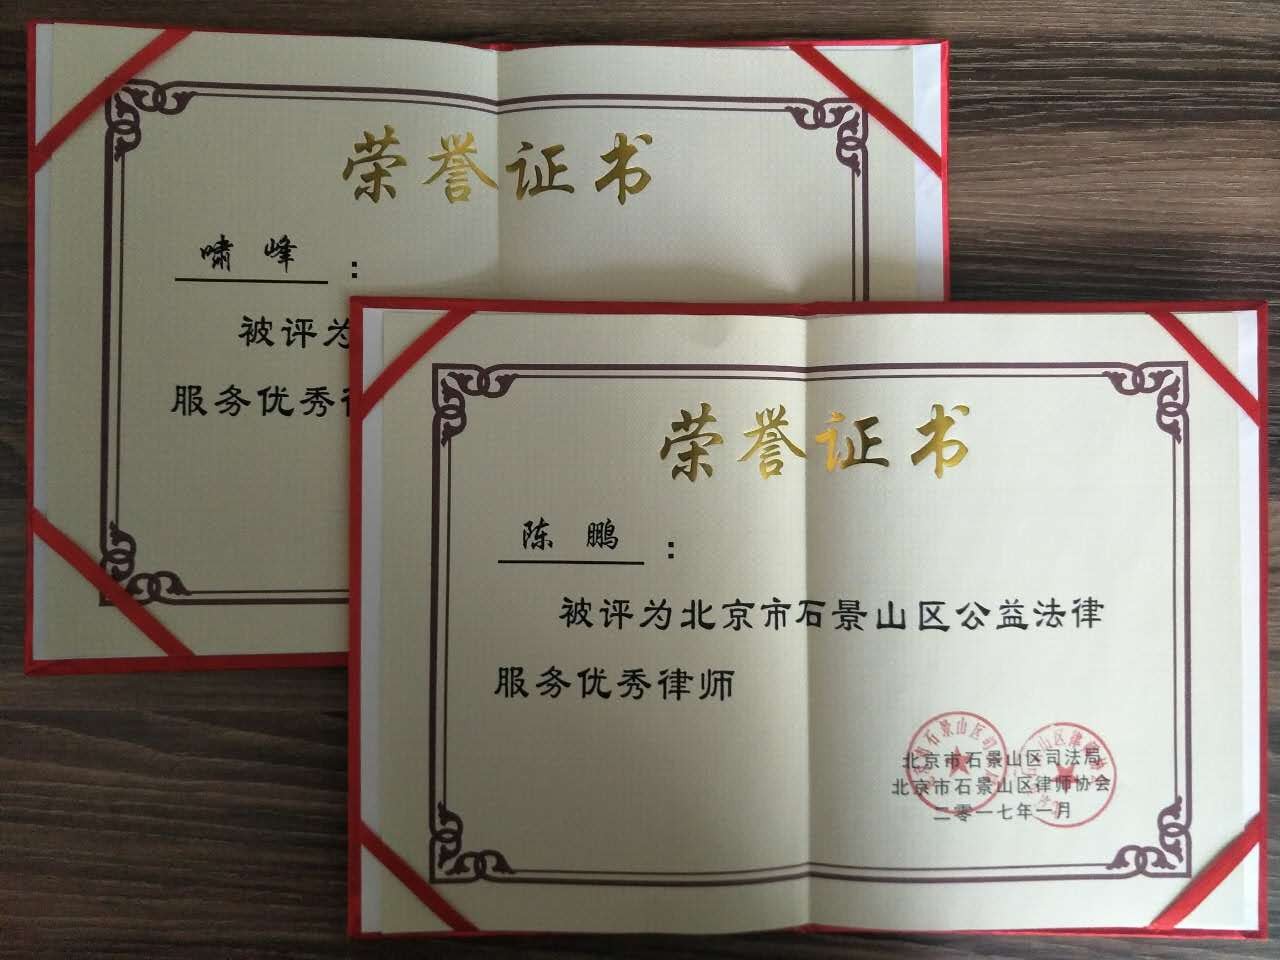 荣誉证书
啸 峰 ：
被评为
服务优秀
荣誉证书
陈 鹏 ：
被评为北京市石景山区公益法律
服务优秀律师
北京市石景山区司法局
北京市石景山区律师协会
二零一七年一月